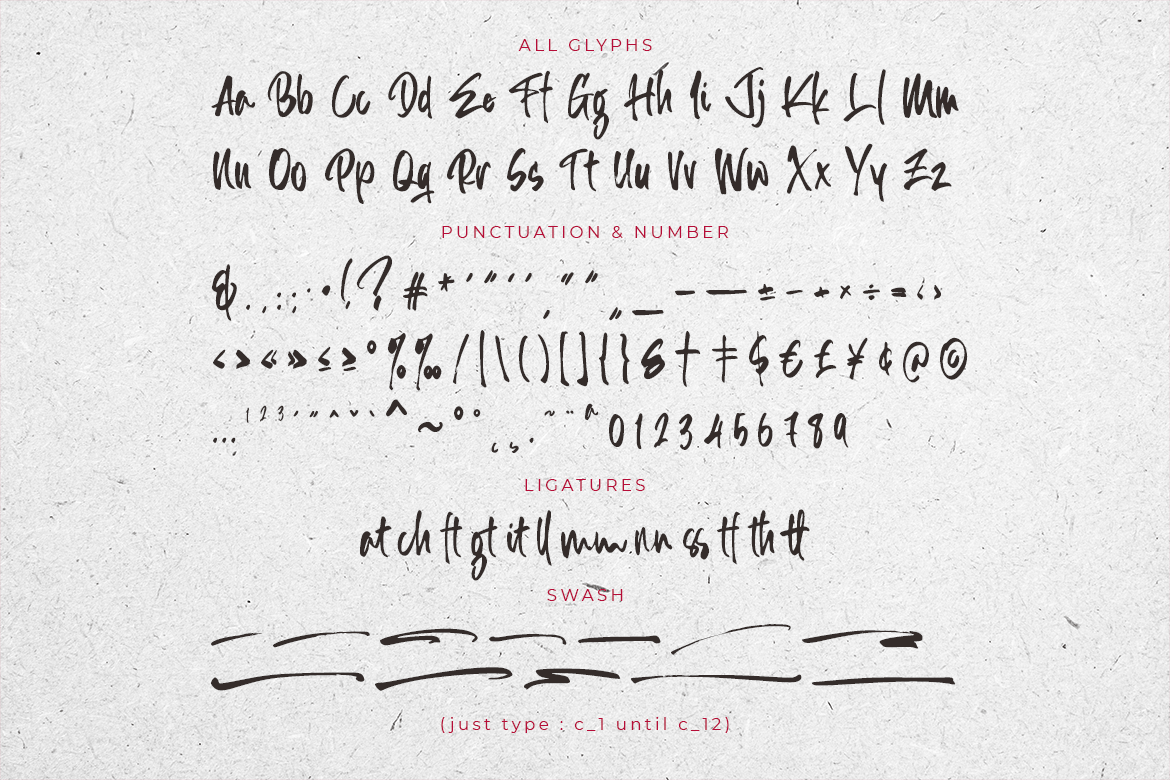 ALL GLYPHS
Aa Bb Cc Dd Ee Ff Gg Hh Ii Jj Kk Ll Mm
Nn Oo Pp Qq Rr Ss Tt Uu Vv Ww Xx Yy Zz
PUNCTUATION & NUMBER
& . , ; : · ! ? # * ' " ' ' " " ‚ „ _ – — ± − + × ÷ = ‹ ›
< > « » ≤ ≥ ° % ‰ / | \ ( ) [ ] { } § † ‡ $ € £ ¥ ¢ @ ©
… 1 2 3 ^ ~ ° ª 0 1 2 3 4 5 6 7 8 9
LIGATURES
at ch ft gt it ll mm nn ss tt th tt
SWASH
(just type : c_1 until c_12)